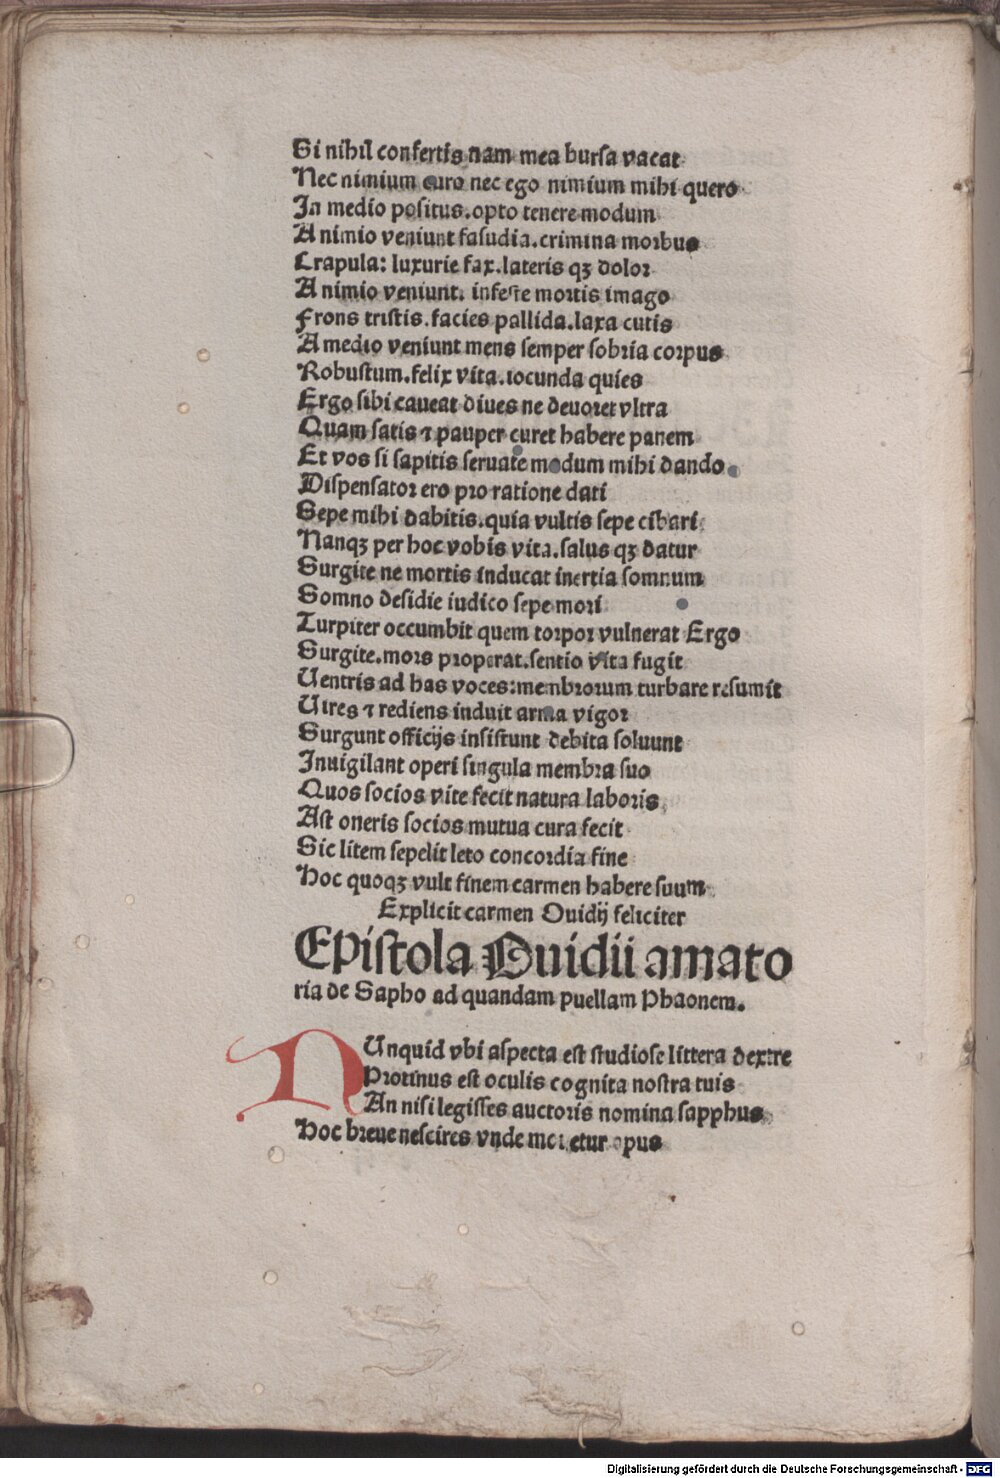 Si nihil confertis nam mea bursa vacat
Nec nimium curo nec ego nimium mihi quero
In medio positus.opto tenere modum
A nimio veniunt fasudia.crimina morbus
Crapula: luxurie fax.lateris qꝫ dolor
A nimio veniunt. infeste mortis imago
Frons tristis.facies pallida.laxa cutis
A medio veniunt mens semper sobria corpus
Robustum.felix vita.iocunda quies
Ergo sibi caueat diues ne deuoret vltra
Quam satis ⁊ pauper curet habere panem
Et vos si sapitis seruate modum mihi dando
Dispensator ero pro ratione dati
Sepe mihi dabitis.quia vultis sepe cibari
Nanqꝫ per hoc vobis vita.salus qꝫ datur
Surgite ne mortis inducat inertia somnum
Somno desidie iudico sepe mori
Turpiter occumbit quem torpor vulnerat Ergo
Surgite.mors properat.sentio vita fugit
Uentris ad has voces:membrorum turbare resumit
Uires ⁊ rediens induit arma vigor
Surgunt officijs insistunt debita soluunt
Inuigilant operi singula membra suo
Quos socios vite fecit natura laboris
Ast oneris socios mutua cura fecit
Sic litem sepelit leto concordia fine
Hoc quoqꝫ vult finem carmen habere suum
Explicit carmen Ouidij feliciter
Epistola Ouidii amato
ria de Sapho ad quandam puellam Phaonem.
NUnquid vbi aspecta est studiose littera dextre
Protinus est oculis cognita nostra tuis
An nisi legisses auctoris nomina sapphus
Hoc breue nescires vnde mouetur opus
Digitalisierung gefördert durch die Deutsche Forschungsgemeinschaft - DFG